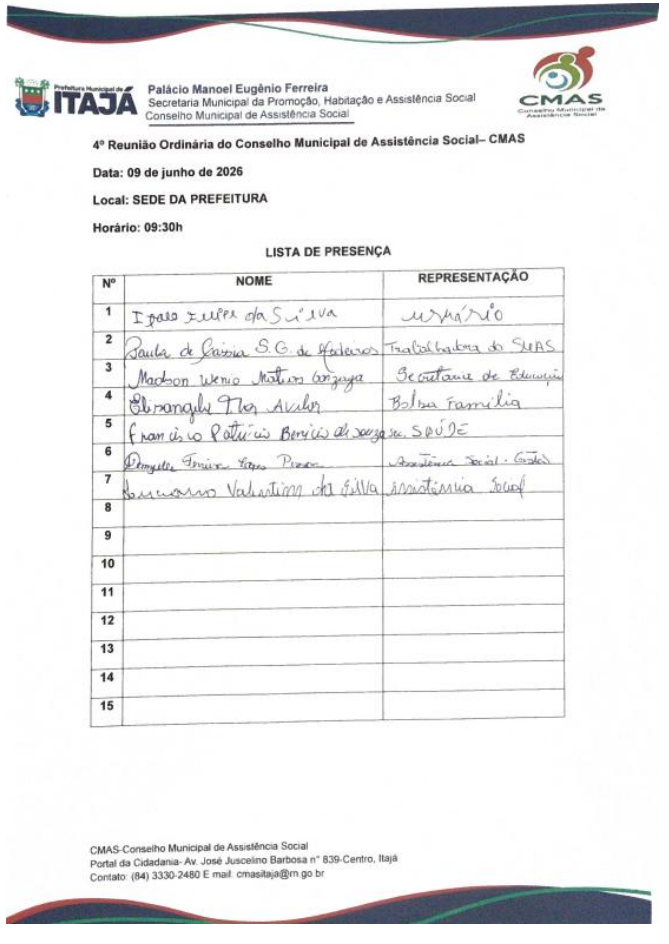 Prefeitura Municipal de
ITAJÁ
Palácio Manoel Eugênio Ferreira
Secretaria Municipal da Promoção, Habitação e Assistência Social
Conselho Municipal de Assistência Social
CMAS
Conselho Municipal de
Assistência Social
4º Reunião Ordinária do Conselho Municipal de Assistência Social– CMAS
Data: 09 de junho de 2026
Local: SEDE DA PREFEITURA
Horário: 09:30h
LISTA DE PRESENÇA
Nº NOME REPRESENTAÇÃO
1 Felipe da Silva usuário
2 Paula de Cássia S. G. de Medeiros Trabalhadora do SUAS
3 Madson Wenio Mateus Gonzaga Secretaria de Educação
4 Elisangela Avelar Bolsa Família
5 Francisco Patrício Benício de Souza sec. SAÚDE
6 Assistência Social - Gestão
7 Valentim da Silva Assistência Social
8
9
10
11
12
13
14
15
CMAS-Conselho Municipal de Assistência Social
Portal da Cidadania- Av. José Juscelino Barbosa n° 839-Centro, Itajá
Contato: (84) 3330-2480 E mail: cmasitaja@rn.go br